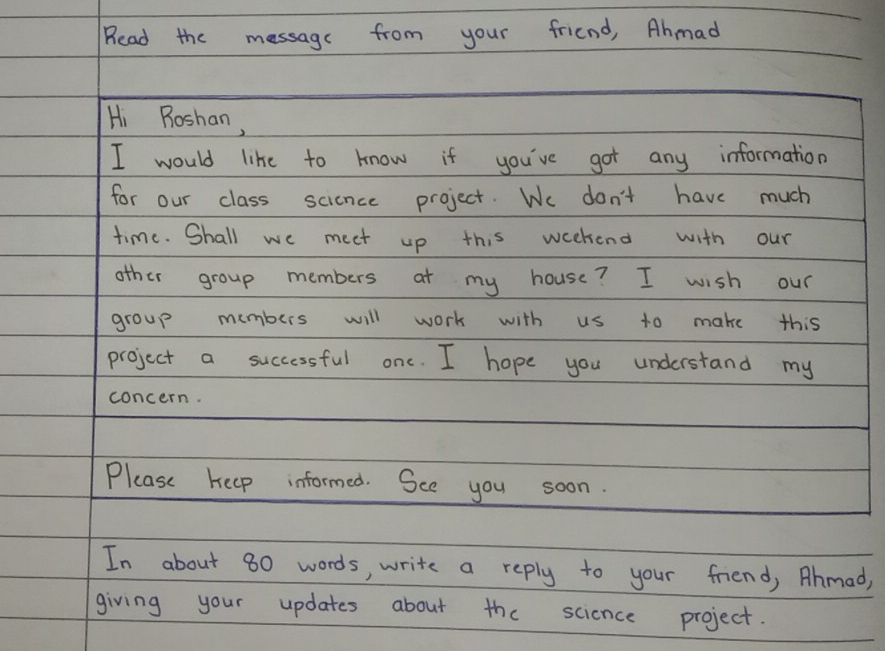 Read the message from your friend, Ahmad
Hi Roshan,
I would like to know if you've got any information
for our class science project. We don't have much
time. Shall we meet up this weekend with our
other group members at my house? I wish our
group members will work with us to make this
project a successful one. I hope you understand my
concern.
Please keep informed. See you soon.
In about 80 words, write a reply to your friend, Ahmad,
giving your updates about the science project.